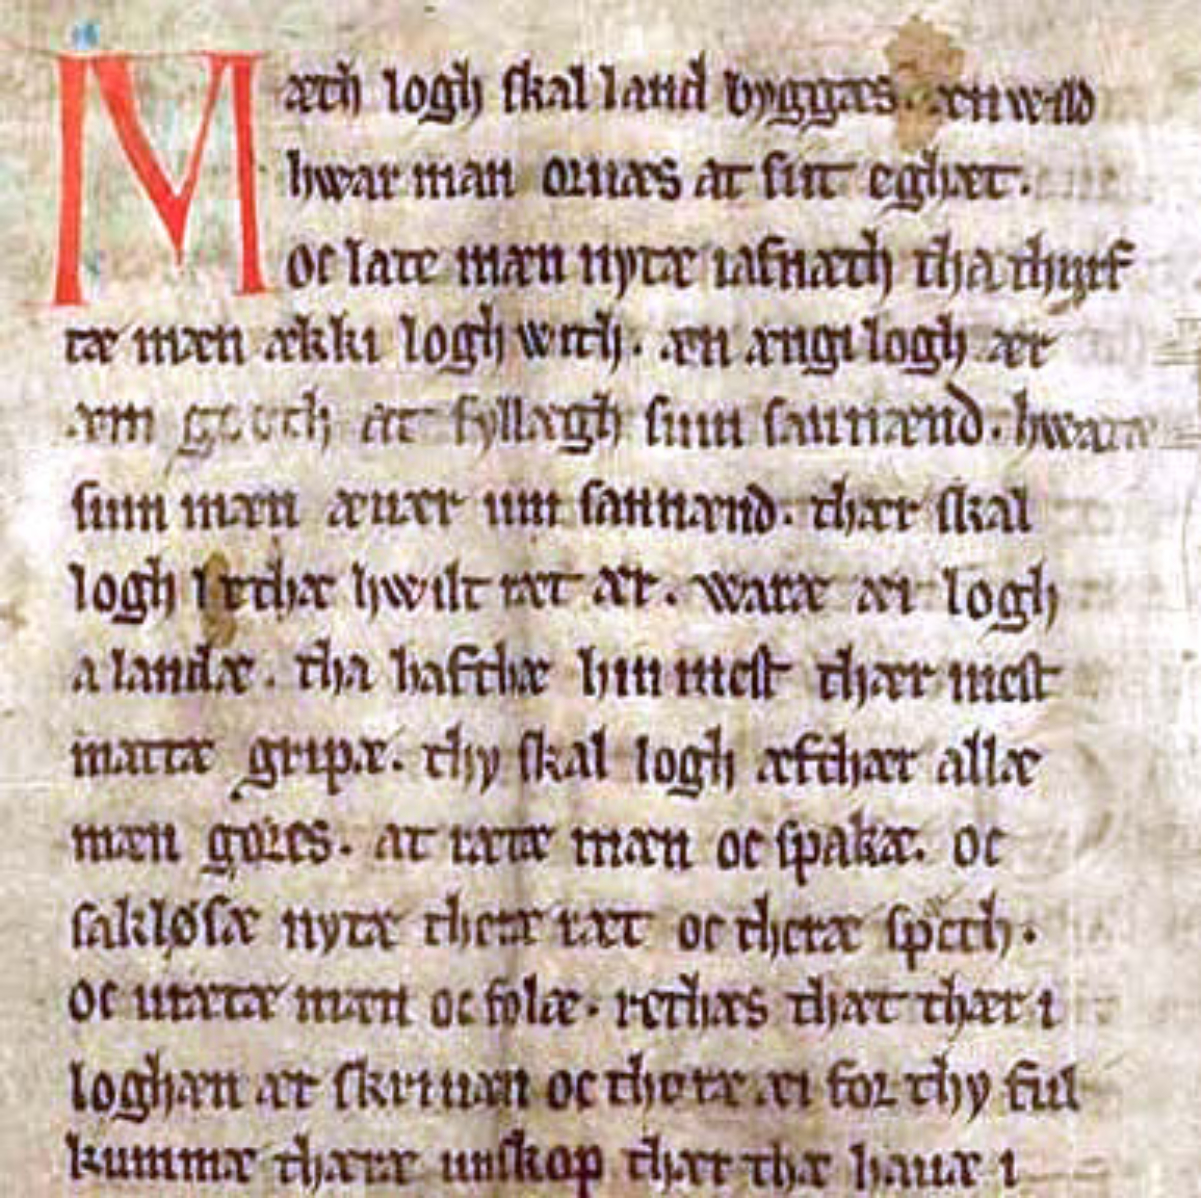 Mæth logh skal land byggæs. æn wild
hwar man oruæs at sitt eghæt.
oc late mæn nytæ iafnæth tha thurf
tæ mæn ækki logh with. æn ængi logh ær
æm gooth at fyllægh sum sannænd. hwaræ
sum mæn æuær um sannænd. thær skal
logh lethæ hwilt ræt ær. waræ æi logh
a landæ. tha hafthæ hin mest thær mest
mattæ gripæ. thy skal logh æfthær allæ
mæn gøres. at rætæ mæn oc spakæ. oc
sakløsæ nytæ theræ ræt oc theræ spæth.
oc urætæ mæn oc folæ. rethæs that thær i
loghæn ær skriuæn oc thoræ æi for thy ful
kummæ theræ unskop thær thæ hauæ i